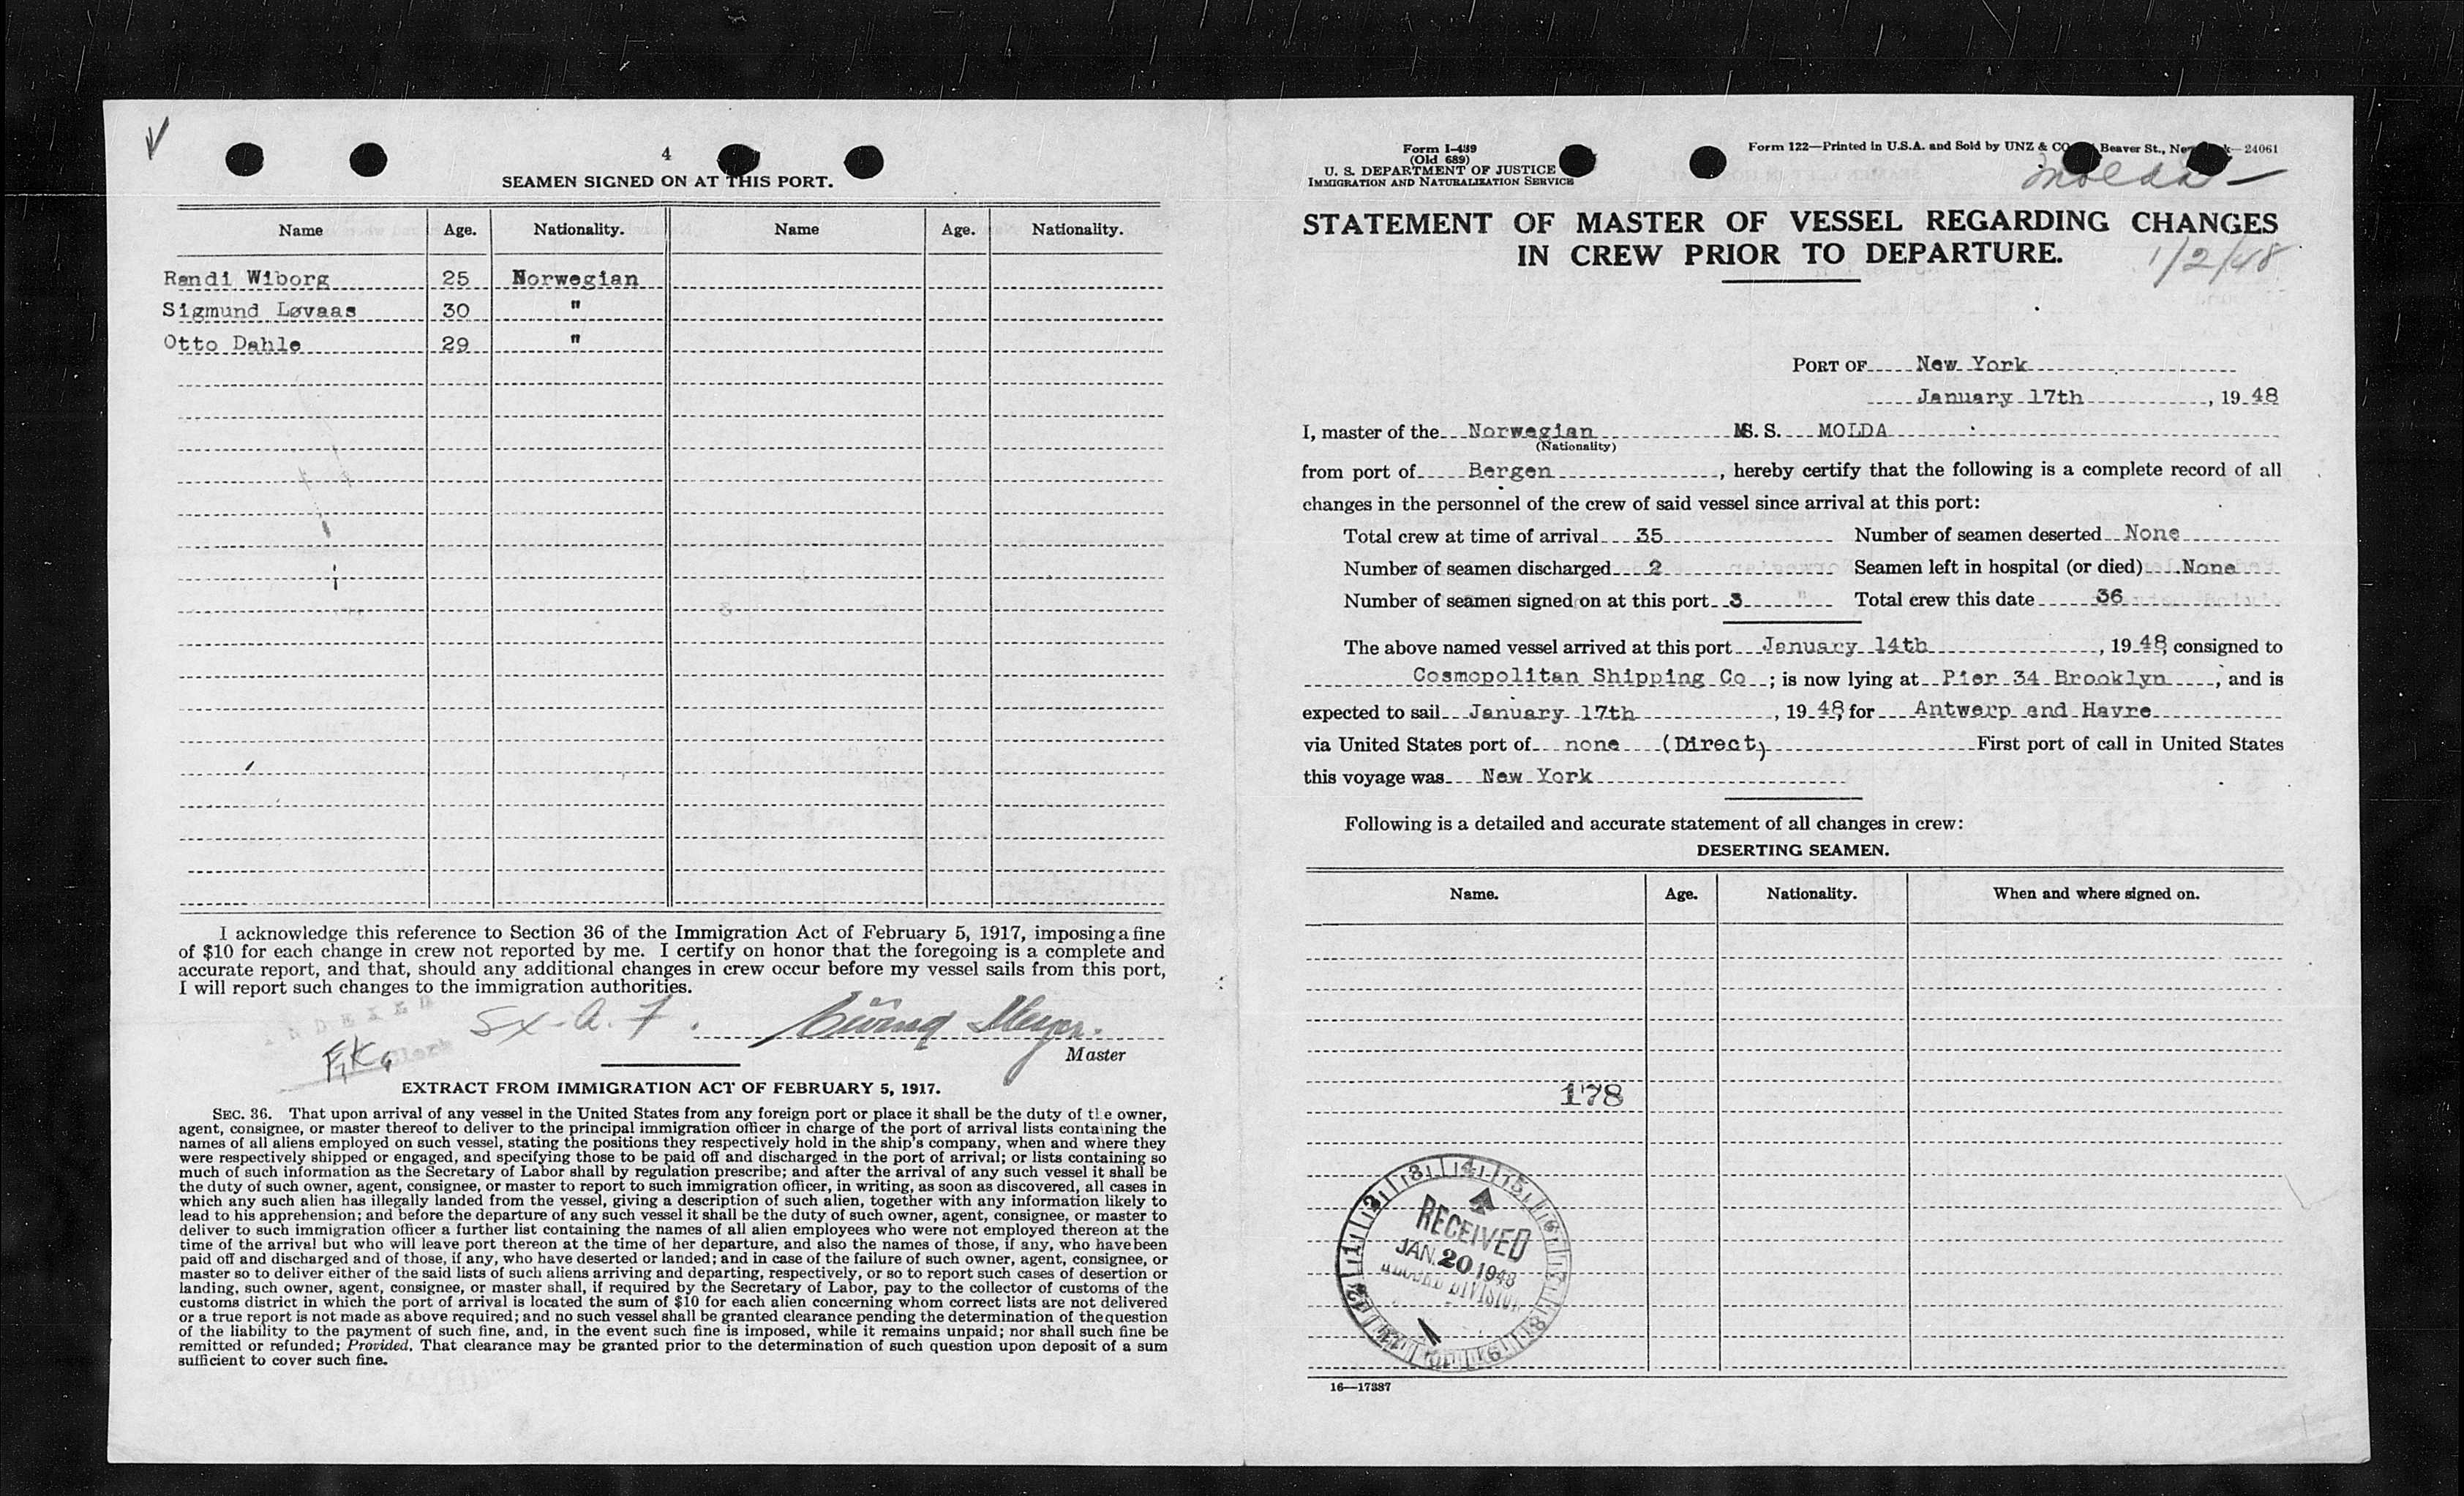 4
SEAMEN SIGNED ON AT THIS PORT.
Name Age. Nationality. Name Age. Nationality.
Randi Wiborg 25 Norwegian
Sigmund Løvaas 30 "
Otto Dahle 29 "
I acknowledge this reference to Section 36 of the Immigration Act of February 5, 1917, imposing a fine
of $10 for each change in crew not reported by me. I certify on honor that the foregoing is a complete and
accurate report, and that, should any additional changes in crew occur before my vessel sails from this port,
I will report such changes to the immigration authorities.
INDEXED
Clerk
Master
EXTRACT FROM IMMIGRATION ACT OF FEBRUARY 5, 1917.
SEC. 36. That upon arrival of any vessel in the United States from any foreign port or place it shall be the duty of the owner,
agent, consignee, or master thereof to deliver to the principal immigration officer in charge of the port of arrival lists containing the
names of all aliens employed on such vessel, stating the positions they respectively hold in the ship's company, when and where they
were respectively shipped or engaged, and specifying those to be paid off and discharged in the port of arrival; or lists containing so
much of such information as the Secretary of Labor shall by regulation prescribe; and after the arrival of any such vessel it shall be
the duty of such owner, agent, consignee, or master to report to such immigration officer, in writing, as soon as discovered, all cases in
which any such alien has illegally landed from the vessel, giving a description of such alien, together with any information likely to
lead to his apprehension; and before the departure of any such vessel it shall be the duty of such owner, agent, consignee, or master to
deliver to such immigration officer a further list containing the names of all alien employees who were not employed thereon at the
time of the arrival but who will leave port thereon at the time of her departure, and also the names of those, if any, who have been
paid off and discharged and of those, if any, who have deserted or landed; and in case of the failure of such owner, agent, consignee, or
master so to deliver either of the said lists of such aliens arriving and departing, respectively, or so to report such cases of desertion or
landing, such owner, agent, consignee, or master shall, if required by the Secretary of Labor, pay to the collector of customs of the
customs district in which the port of arrival is located the sum of $10 for each alien concerning whom correct lists are not delivered
or a true report is not made as above required; and no such vessel shall be granted clearance pending the determination of the question
of the liability to the payment of such fine, and, in the event such fine is imposed, while it remains unpaid; nor shall such fine be
remitted or refunded; Provided, That clearance may be granted prior to the determination of such question upon deposit of a sum
sufficient to cover such fine.
Form I-489
(Old 689)
U. S. DEPARTMENT OF JUSTICE
IMMIGRATION AND NATURALIZATION SERVICE
Form 122—Printed in U.S.A. and Sold by UNZ & CO Beaver St., New 24061
Molda —
STATEMENT OF MASTER OF VESSEL REGARDING CHANGES
IN CREW PRIOR TO DEPARTURE.
1/2/48
PORT OF New York
January 17th, 1948
I, master of the Norwegian MS. S. MOLDA
(Nationality)
from port of Bergen, hereby certify that the following is a complete record of all
changes in the personnel of the crew of said vessel since arrival at this port:
Total crew at time of arrival 35 Number of seamen deserted None
Number of seamen discharged 2 Seamen left in hospital (or died) None
Number of seamen signed on at this port 3 Total crew this date 36
The above named vessel arrived at this port January 14th, 1948, consigned to
Cosmopolitan Shipping Co; is now lying at Pier 34 Brooklyn, and is
expected to sail January 17th, 1948, for Antwerp and Havre
via United States port of none (Direct) First port of call in United States
this voyage was New York
Following is a detailed and accurate statement of all changes in crew:
DESERTING SEAMEN.
Name. Age. Nationality. When and where signed on.
178
RECEIVED
JAN. 20 1948
RECORD DIVISION
16—17387